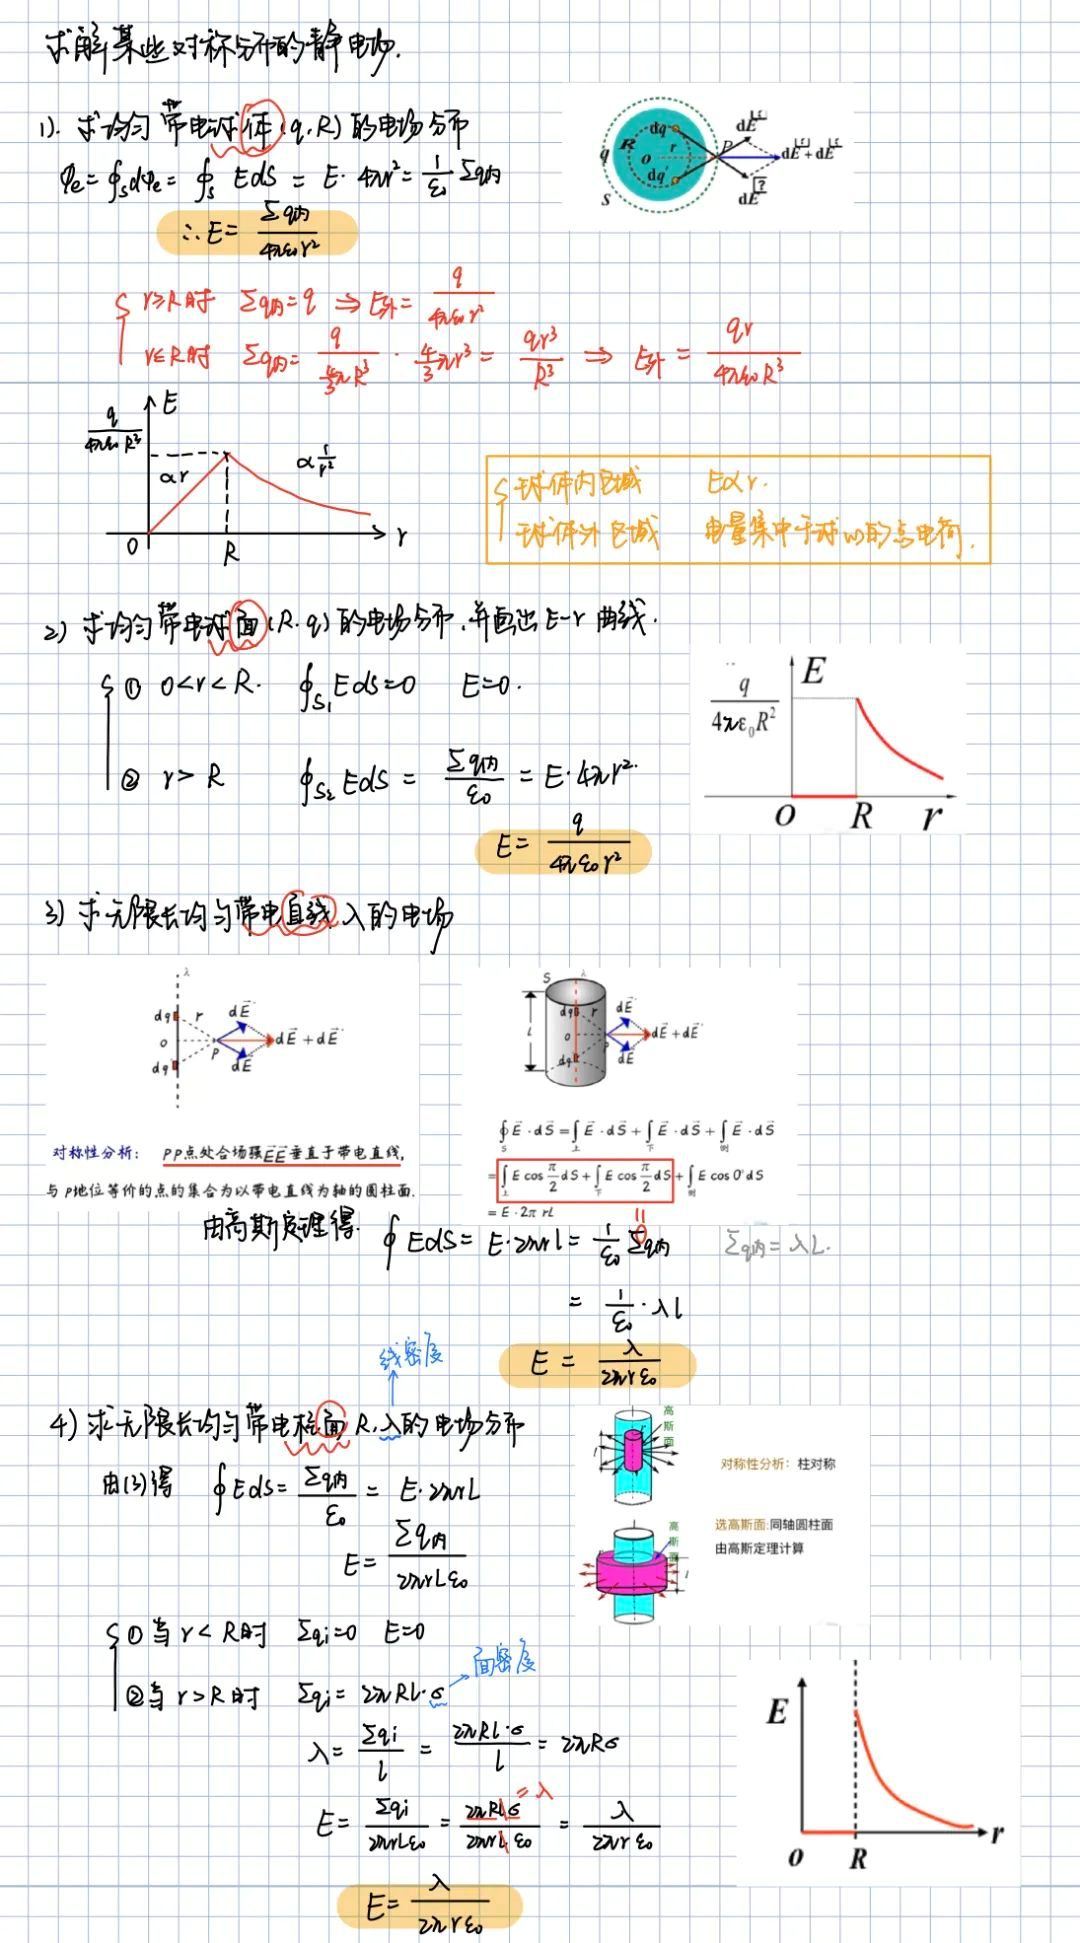 求解某些对称分布的静电场.
1). 求均匀带电球体(q.R)的电场分布
Φe=∮s dφe=∮s EdS = E·4πr²=1/ε₀ Σq内
∴E= Σq内/4πε₀r²
r≥R时 Σq内=q ⇒ E外= q/4πε₀r²
r≤R时 Σq内= q/(4/3πR³) · 4/3πr³ = qr³/R³ ⇒ E外 = qr/4πε₀R³
dq dq' R r o P q S dE dE dE+dE
q/4πε₀R³ E
αr α1/r²
O R r
球体内区域 E∝r.
球体外区域 电量集中于球心的点电荷.
2) 求均匀带电球面(R.q)的电场分布.并画出E-r曲线.
① 0<r<R. ∮S₁EdS=0 E=0.
② r>R ∮S₂EdS = Σq内/ε₀ = E·4πr².
E= q/4πε₀r²
q/4πε₀R² E
O R r
3) 求无限长均匀带电直线λ的电场
λ dq r dE o P dE+dE dq dE
S λ dq r dE l o P dE+dE dq dE
对称性分析： PP点处合场强EE垂直于带电直线,
与P地位等价的点的集合为以带电直线为轴的圆柱面.
∮S E·dS=∫上E·dS+∫下E·dS+∫侧E·dS
=∫上E cos π/2 dS+∫下E cos π/2 dS+∫侧E cos 0°dS
= E·2π rL
0
由高斯定理得. ∮EdS= E·2πrl= 1/ε₀ Σq内 Σq内=λL.
= 1/ε₀·λl
E = λ/2πrε₀
线密度
4) 求无限长均匀带电柱面R.λ的电场分布
由(3)得 ∮EdS= Σq内/ε₀ = E·2πrL
E= Σq内/2πrLε₀
高斯面
l r
对称性分析：柱对称
高斯面
r l
选高斯面:同轴圆柱面
由高斯定理计算
①当r<R时 Σqi=0 E=0
面密度
②当r>R时 Σqi= 2πRl·σ
λ= Σqi/l = 2πRl·σ/l = 2πRσ
E= Σqi/2πrLε₀ = 2πRlσ/2πrlε₀ = λ/2πrε₀
=λ
E= λ/2πrε₀
E
o R r